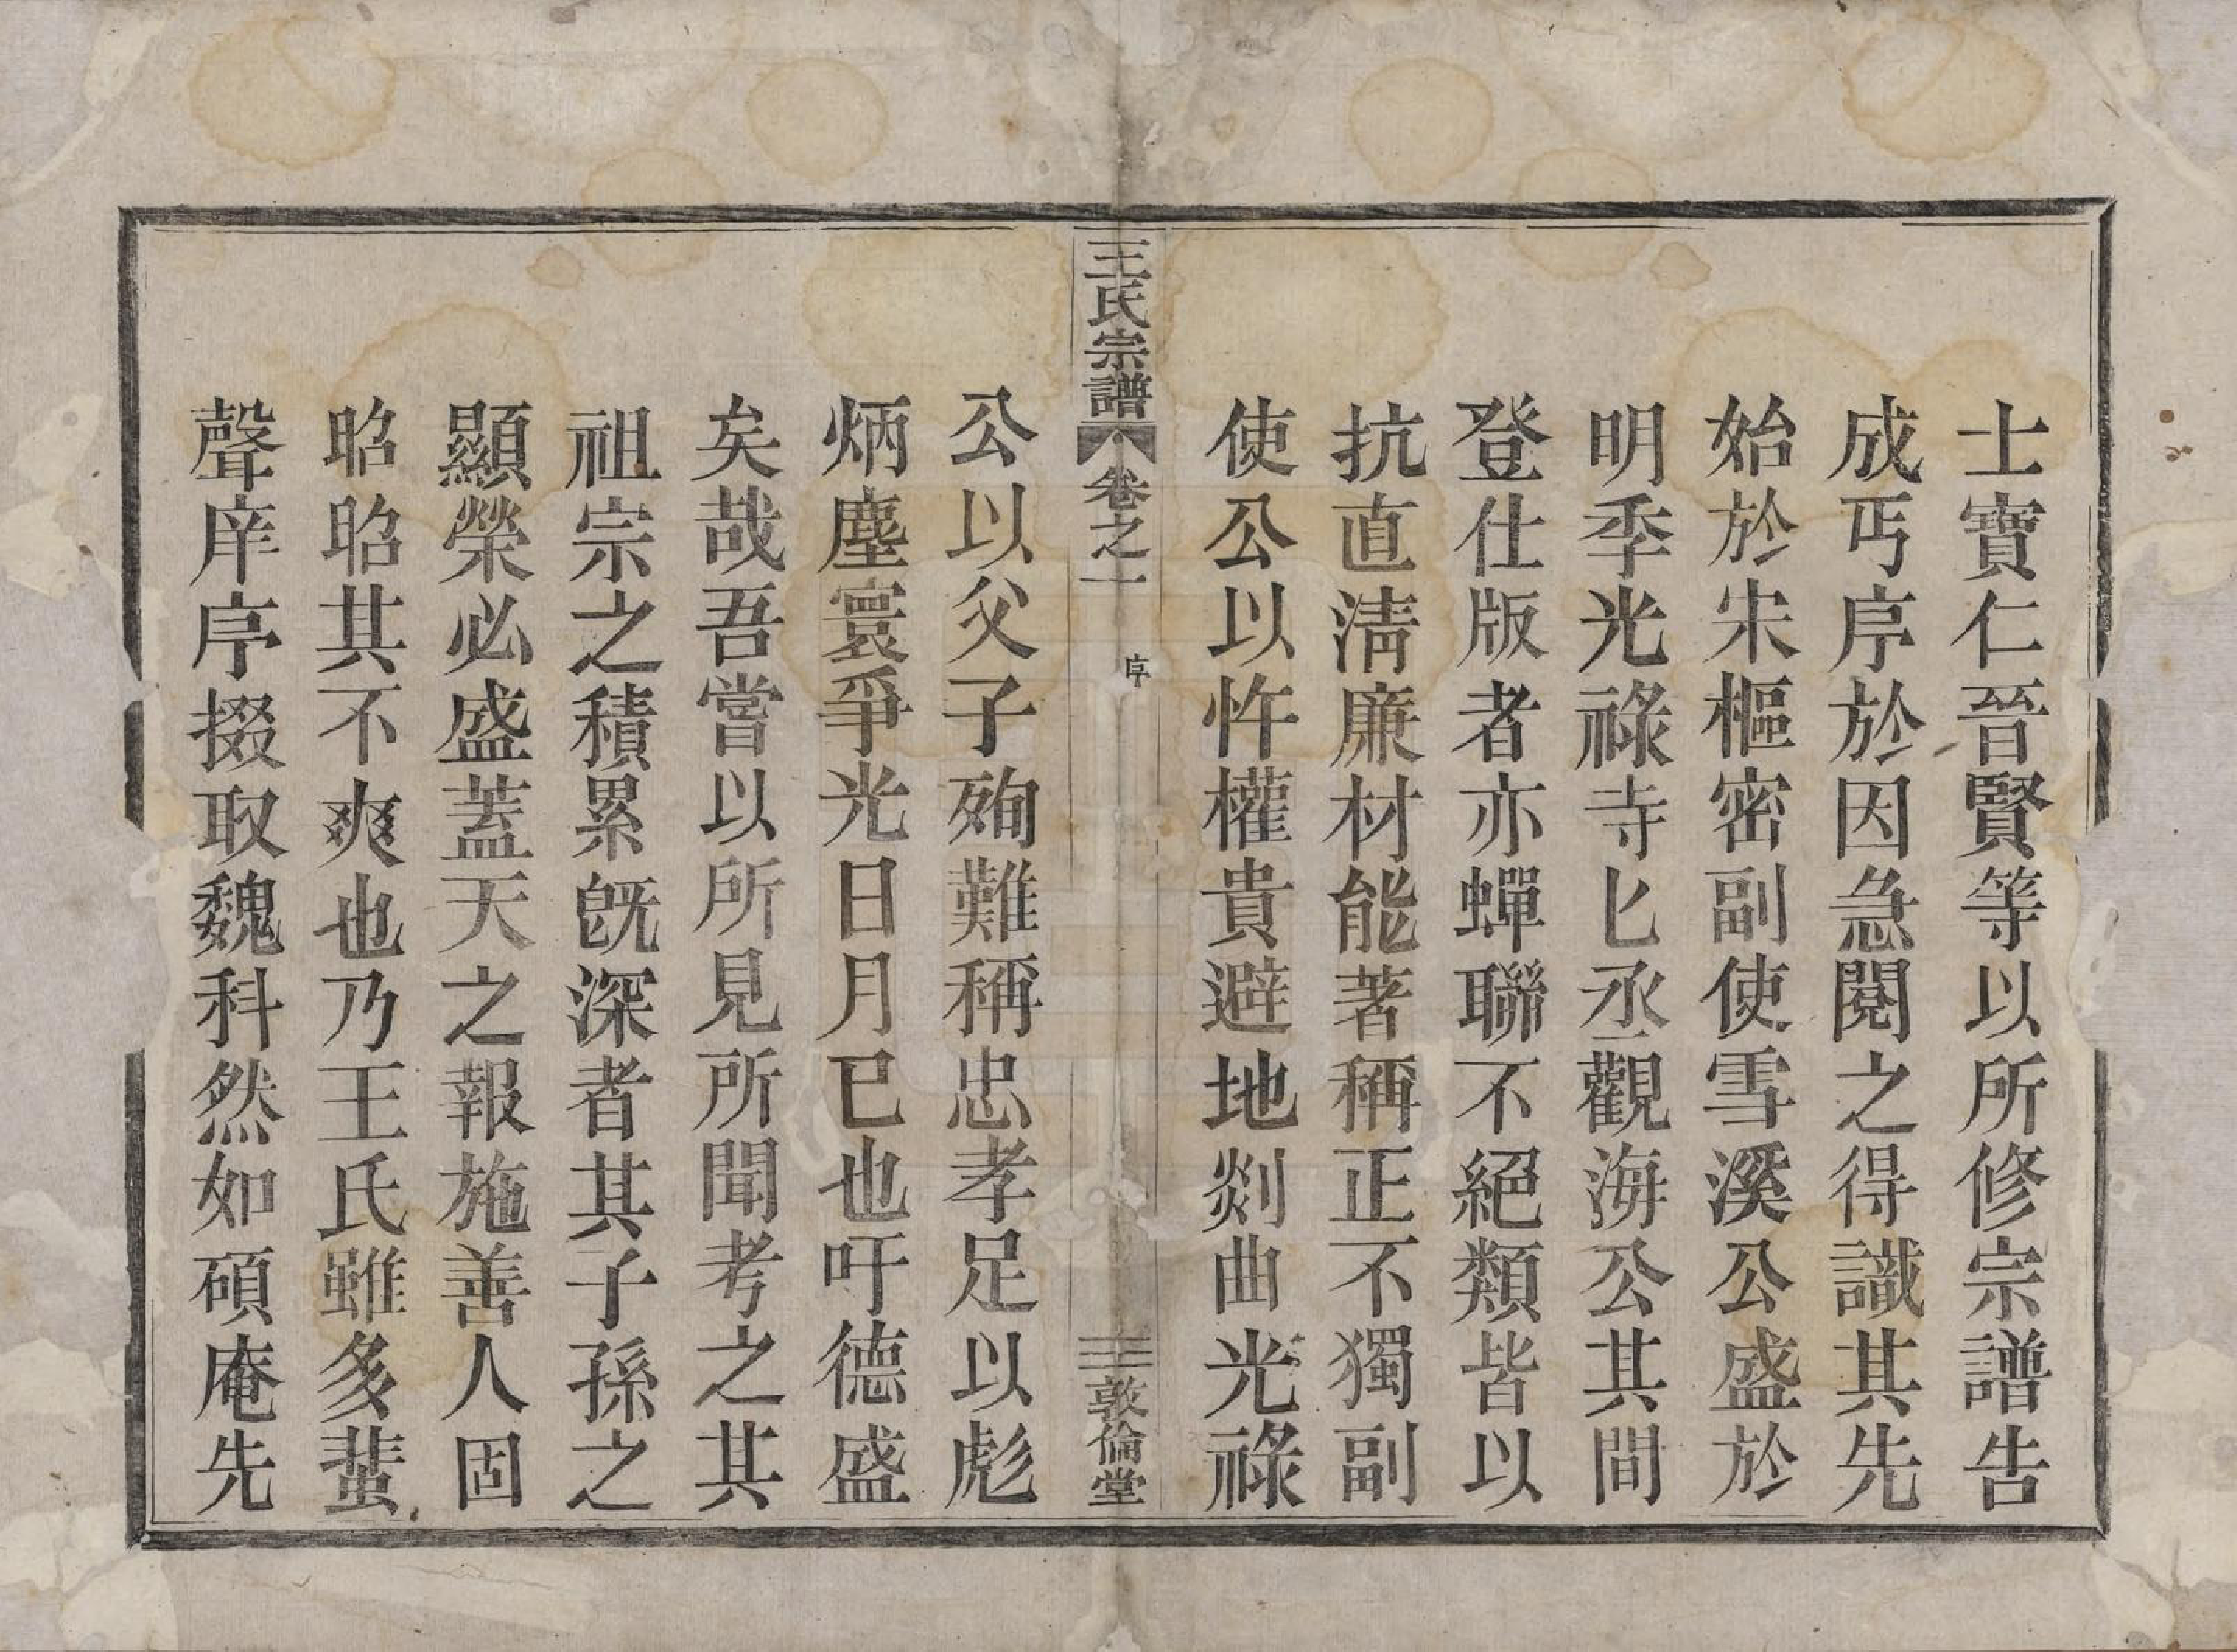 士寶仁晉賢等以所修宗譜告
成丐序於因急閱之得識其先
始於宋樞密副使雪溪公盛於
明季光祿寺匕丞觀海公其間
登仕版者亦蟬聯不絕類皆以
抗直淸廉材能著稱正不獨副
使公以忤權貴避地剡曲光祿
王氏宗譜
卷之一
序
三
敦倫堂
公以父子殉難稱忠孝足以彪
炳塵寰爭光日月已也吁德盛
矣哉吾嘗以所見所聞考之其
祖宗之積累旣深者其子孫之
顯榮必盛蓋天之報施善人固
昭昭其不爽也乃王氏雖多蜚
聲庠序掇取魏科然如碩庵先